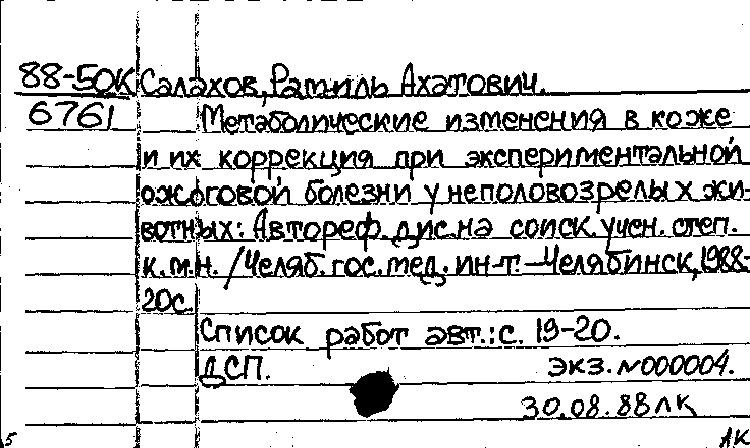 88-50К Салахов, Рамиль Ахатович.
6761 Метаболические изменения в коже
и их коррекция при экспериментальной
ожоговой болезни у неполовозрелых жи-
вотных: Автореф. дис. на соиск. учен. степ.
к.м.н. / Челяб. гос. мед. ин-т. – Челябинск, 1988-
20с.
Список работ авт.: с. 19-20.
ДСП. экз. №000004.
30.08.88 ЛК
5 АК